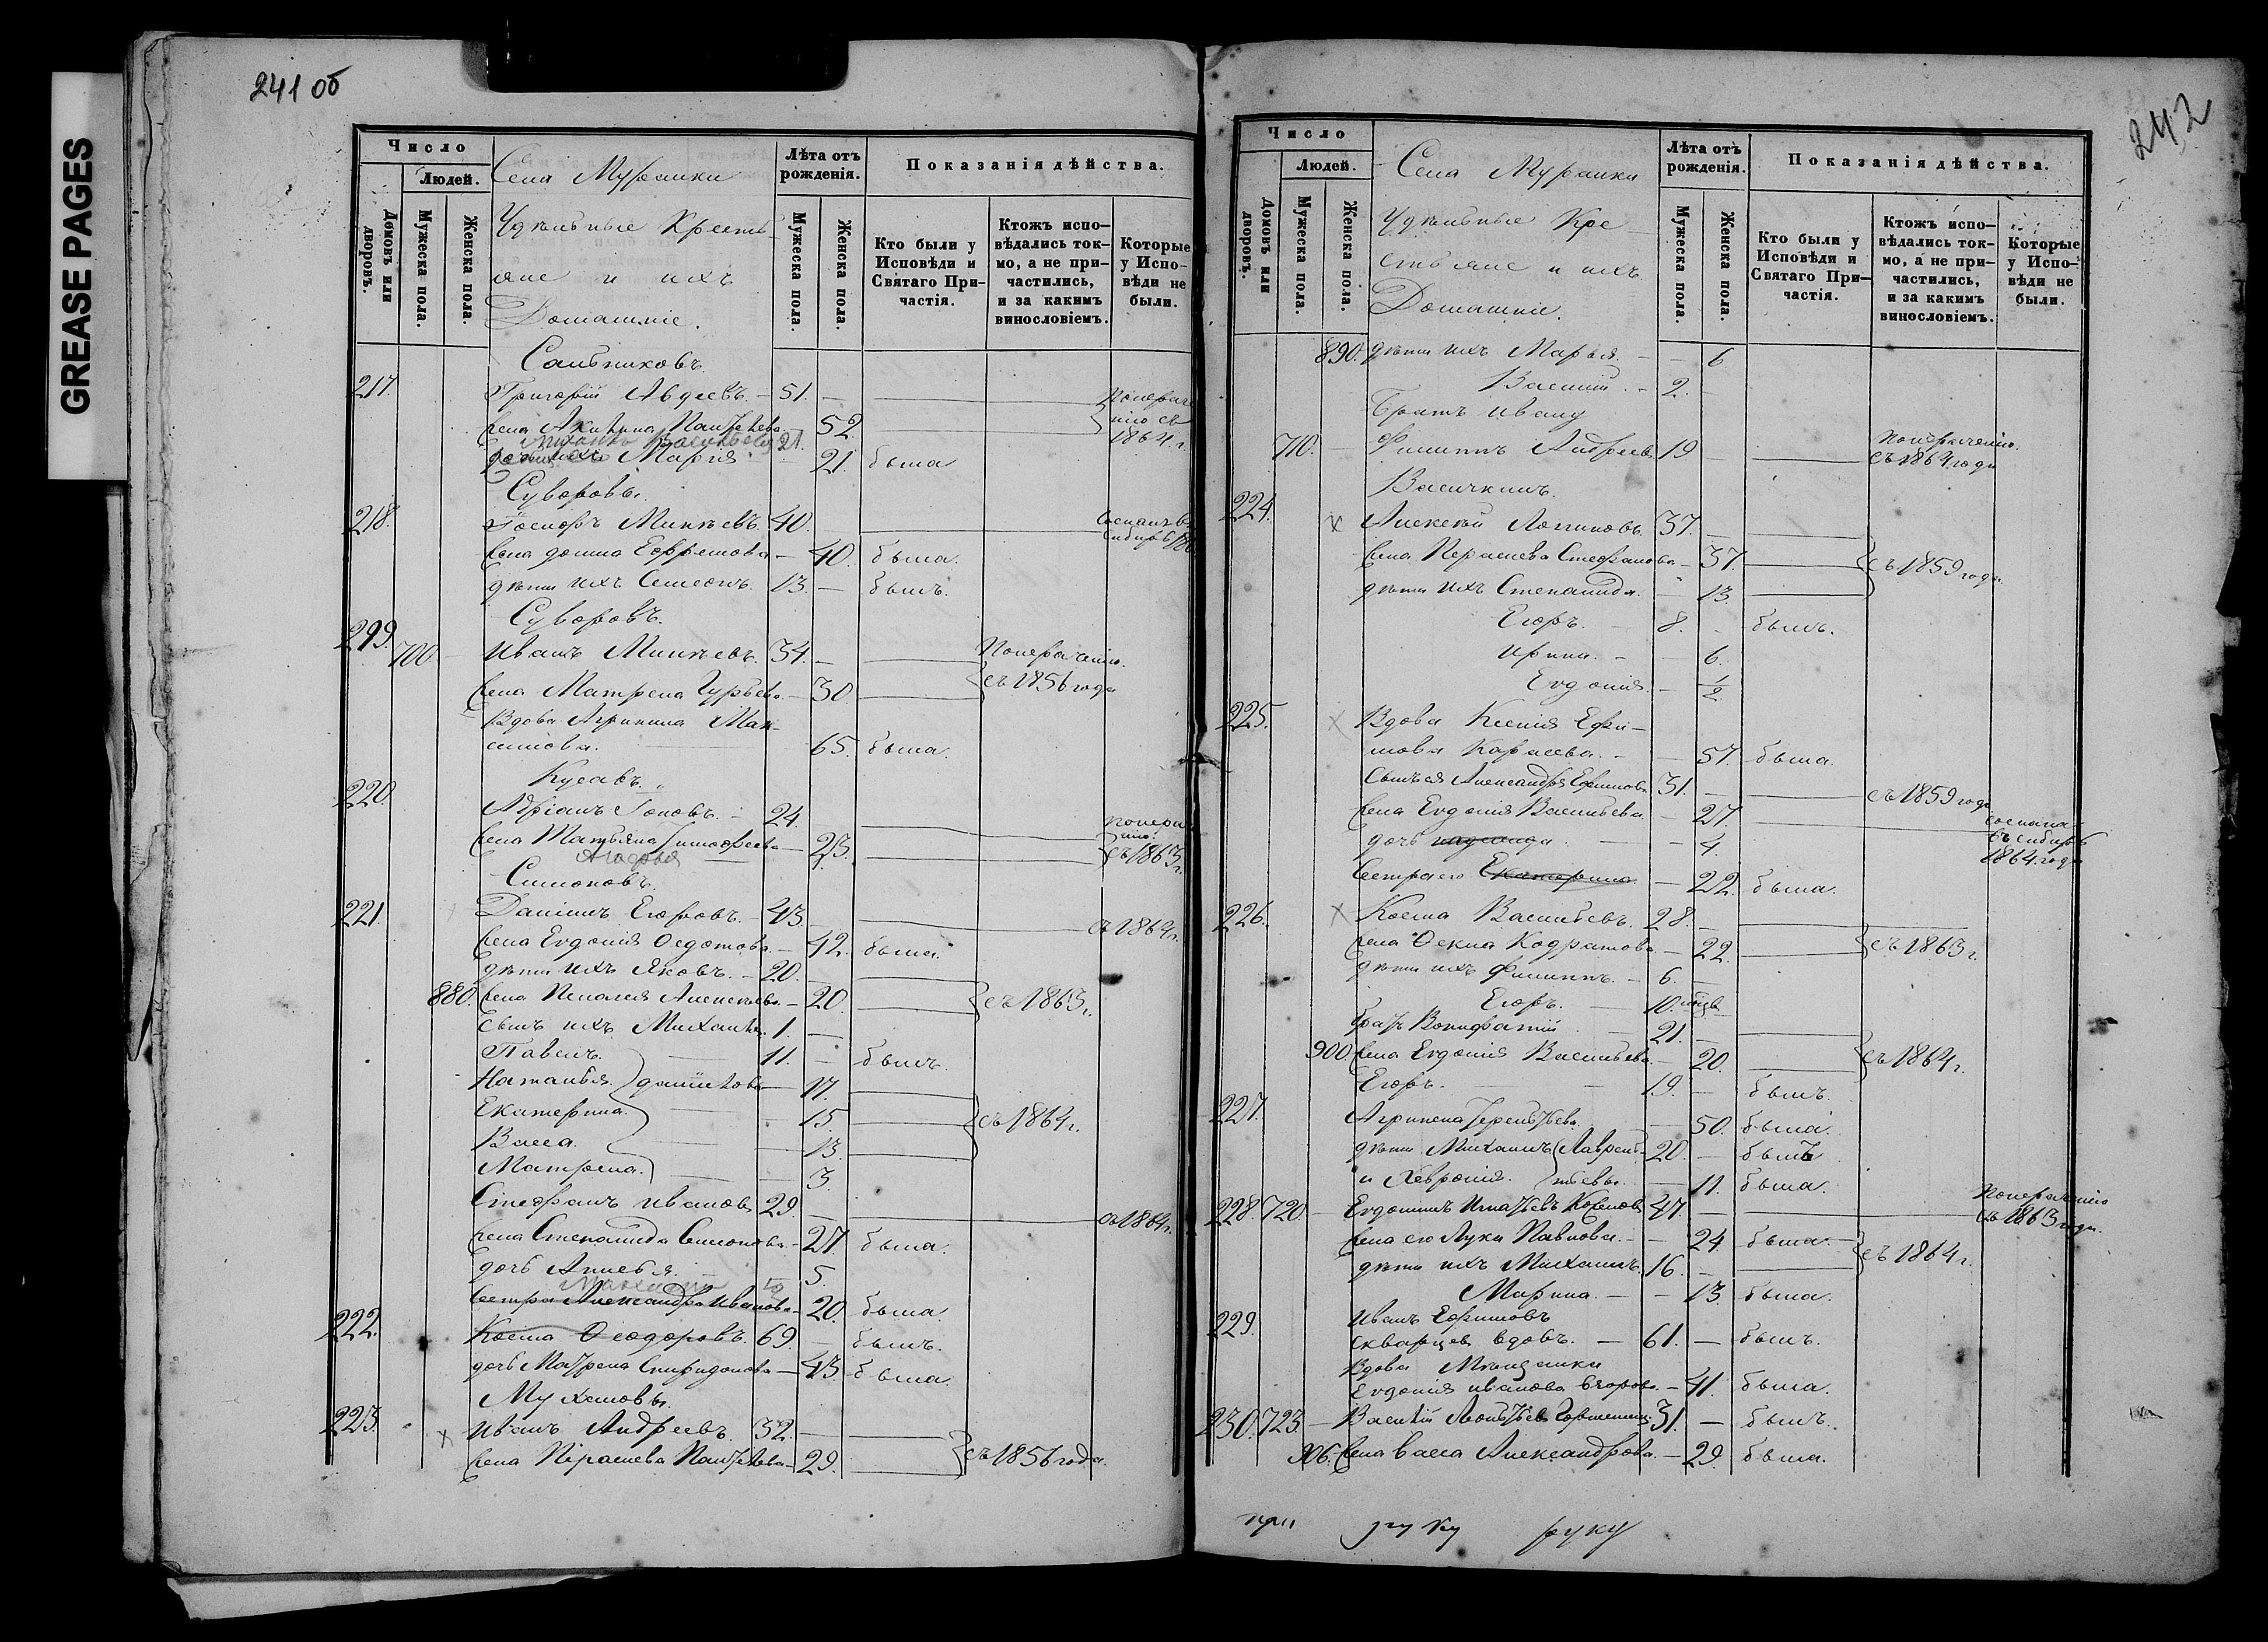 GREASE PAGES
241 об
Число
Людей.
Домовъ или дворовъ.
Мужеска пола.
Женска пола.
Села Муранки
Удѣльные Крестья-
яне и ихъ
Домашніе.
Лѣта отъ рожденія.
Мужеска пола.
Женска пола.
Показанія дѣйства.
Кто были у Исповѣди и Святаго При-частія.
Ктожъ испо-вѣдались ток-мо, а не при-частились, и за какимъ винословіемъ.
Которые у Испо-вѣди не были.
Сальниковъ.
217. Григорій Авдеевъ. — 51. —
Жена Акилина Пантѣлева — 52
1864 г.
дочь ихъ Марія 21. была
Суворовы.
218. Минѣевъ. 40.
Жена Домна Ефремова — 40. была.
дѣти ихъ Симеонъ. 13. — былъ.
Суворовъ.
219. 700. Иванъ Минѣевъ. 34. — Понераченію
Жена Матрена Гурьева — 30. съ 1856 года
Вдова Агрипина Мак-
симова. 65. была.
220. Адріанъ 24.
Жена Татьяна Тимофеева — 23. съ 1863 г.
Симоновъ.
221. Данилъ Егоровъ. — 43. съ 1864 г.
Жена Евдокія Федотова. — 42. была.
дѣти ихъ Яковъ. — 20.
880. Жена Пелагея Алексѣева. — 20. съ 1863 г.
сынъ ихъ Михаилъ. 1. —
Павелъ. 11. — былъ.
Наталья. Данилова 17.
Екатерина. 15. съ 1864 г.
Васса. 13.
Матрена. 3.
Стефанъ Ивановъ 29. съ 1864 г.
Жена Степанида Симонова. — 27. была.
дочь 5.
Сестра Александра Иванова — 20. была.
222. Косма Феодоровъ. 69. — былъ.
дочь Матрена Спиридонова — 43. была.
223. Иванъ Андреевъ. 32. —
Жена Параскева Пантѣлева — 29. съ 1856 года.
242
Число
Людей.
Домовъ или дворовъ.
Мужеска пола.
Женска пола.
Села Муранки
Удѣльные Кре-
стьяне и ихъ
Домашніе.
Лѣта отъ рожденія.
Мужеска пола.
Женска пола.
Показанія дѣйства.
Кто были у Исповѣди и Святаго При-частія.
Ктожъ испо-вѣдались ток-мо, а не при-частились, и за какимъ винословіемъ.
Которые у Испо-вѣди не были.
890. дѣти ихъ Марья. — 6
Василій. — 2.
Братъ Ивану
710. Филиппъ Андреевъ. 19 Понераченію
съ 1864 года
Васичкинъ.
224. Алексѣй Логиновъ. 37.
Жена Параскева Стефанова — 37. съ 1859 года
дѣти ихъ Степанида. — 13.
Егоръ. 8. — былъ.
Ирина. — 6.
Евдокія. — 1/2
225. Вдова Ксенія Ефи-
мова Карасева. — 57. была.
Сынъ ея Александръ Ефимовъ 31. съ 1859 года
Жена Евдокія Васильева 27. сослана
въ Сибирь
дочь 4. 1864 года
Сестра его Екатерина — 22. была.
226. Косма Васильевъ. 28.
Жена Фекла Кодратова — 22. съ 1863 г.
дѣти ихъ Филиппъ. — 6.
Егоръ. 10.
братъ Вонифатій 21.
900. Жена Евдокія Васильева. — 20. съ 1864 г.
Егоръ. 19. — былъ.
227. Агрипена Терентьева. 50. была.
дѣти Михаилъ Лаврен- 20. — былъ
и Хеврония. тьевы. — 11. была.
228. 720. — Евдокимъ Игнатьевъ 47. Понераченію
съ 1863 года.
Жена его Лукия Павлова. — 24. была. съ 1864 г.
дѣти ихъ Михаилъ. 16.
Марина. — 13. была.
229. Иванъ Ефимовъ
Скварцевъ вдовъ. — 61. — былъ.
Вдова Мѣщанка
Евдокія Иванова Егорова. — 41. была.
230. 723. — Василій Леонтьевъ 31. — былъ.
906. Жена Васса Александрова. — 29. была.
при руку